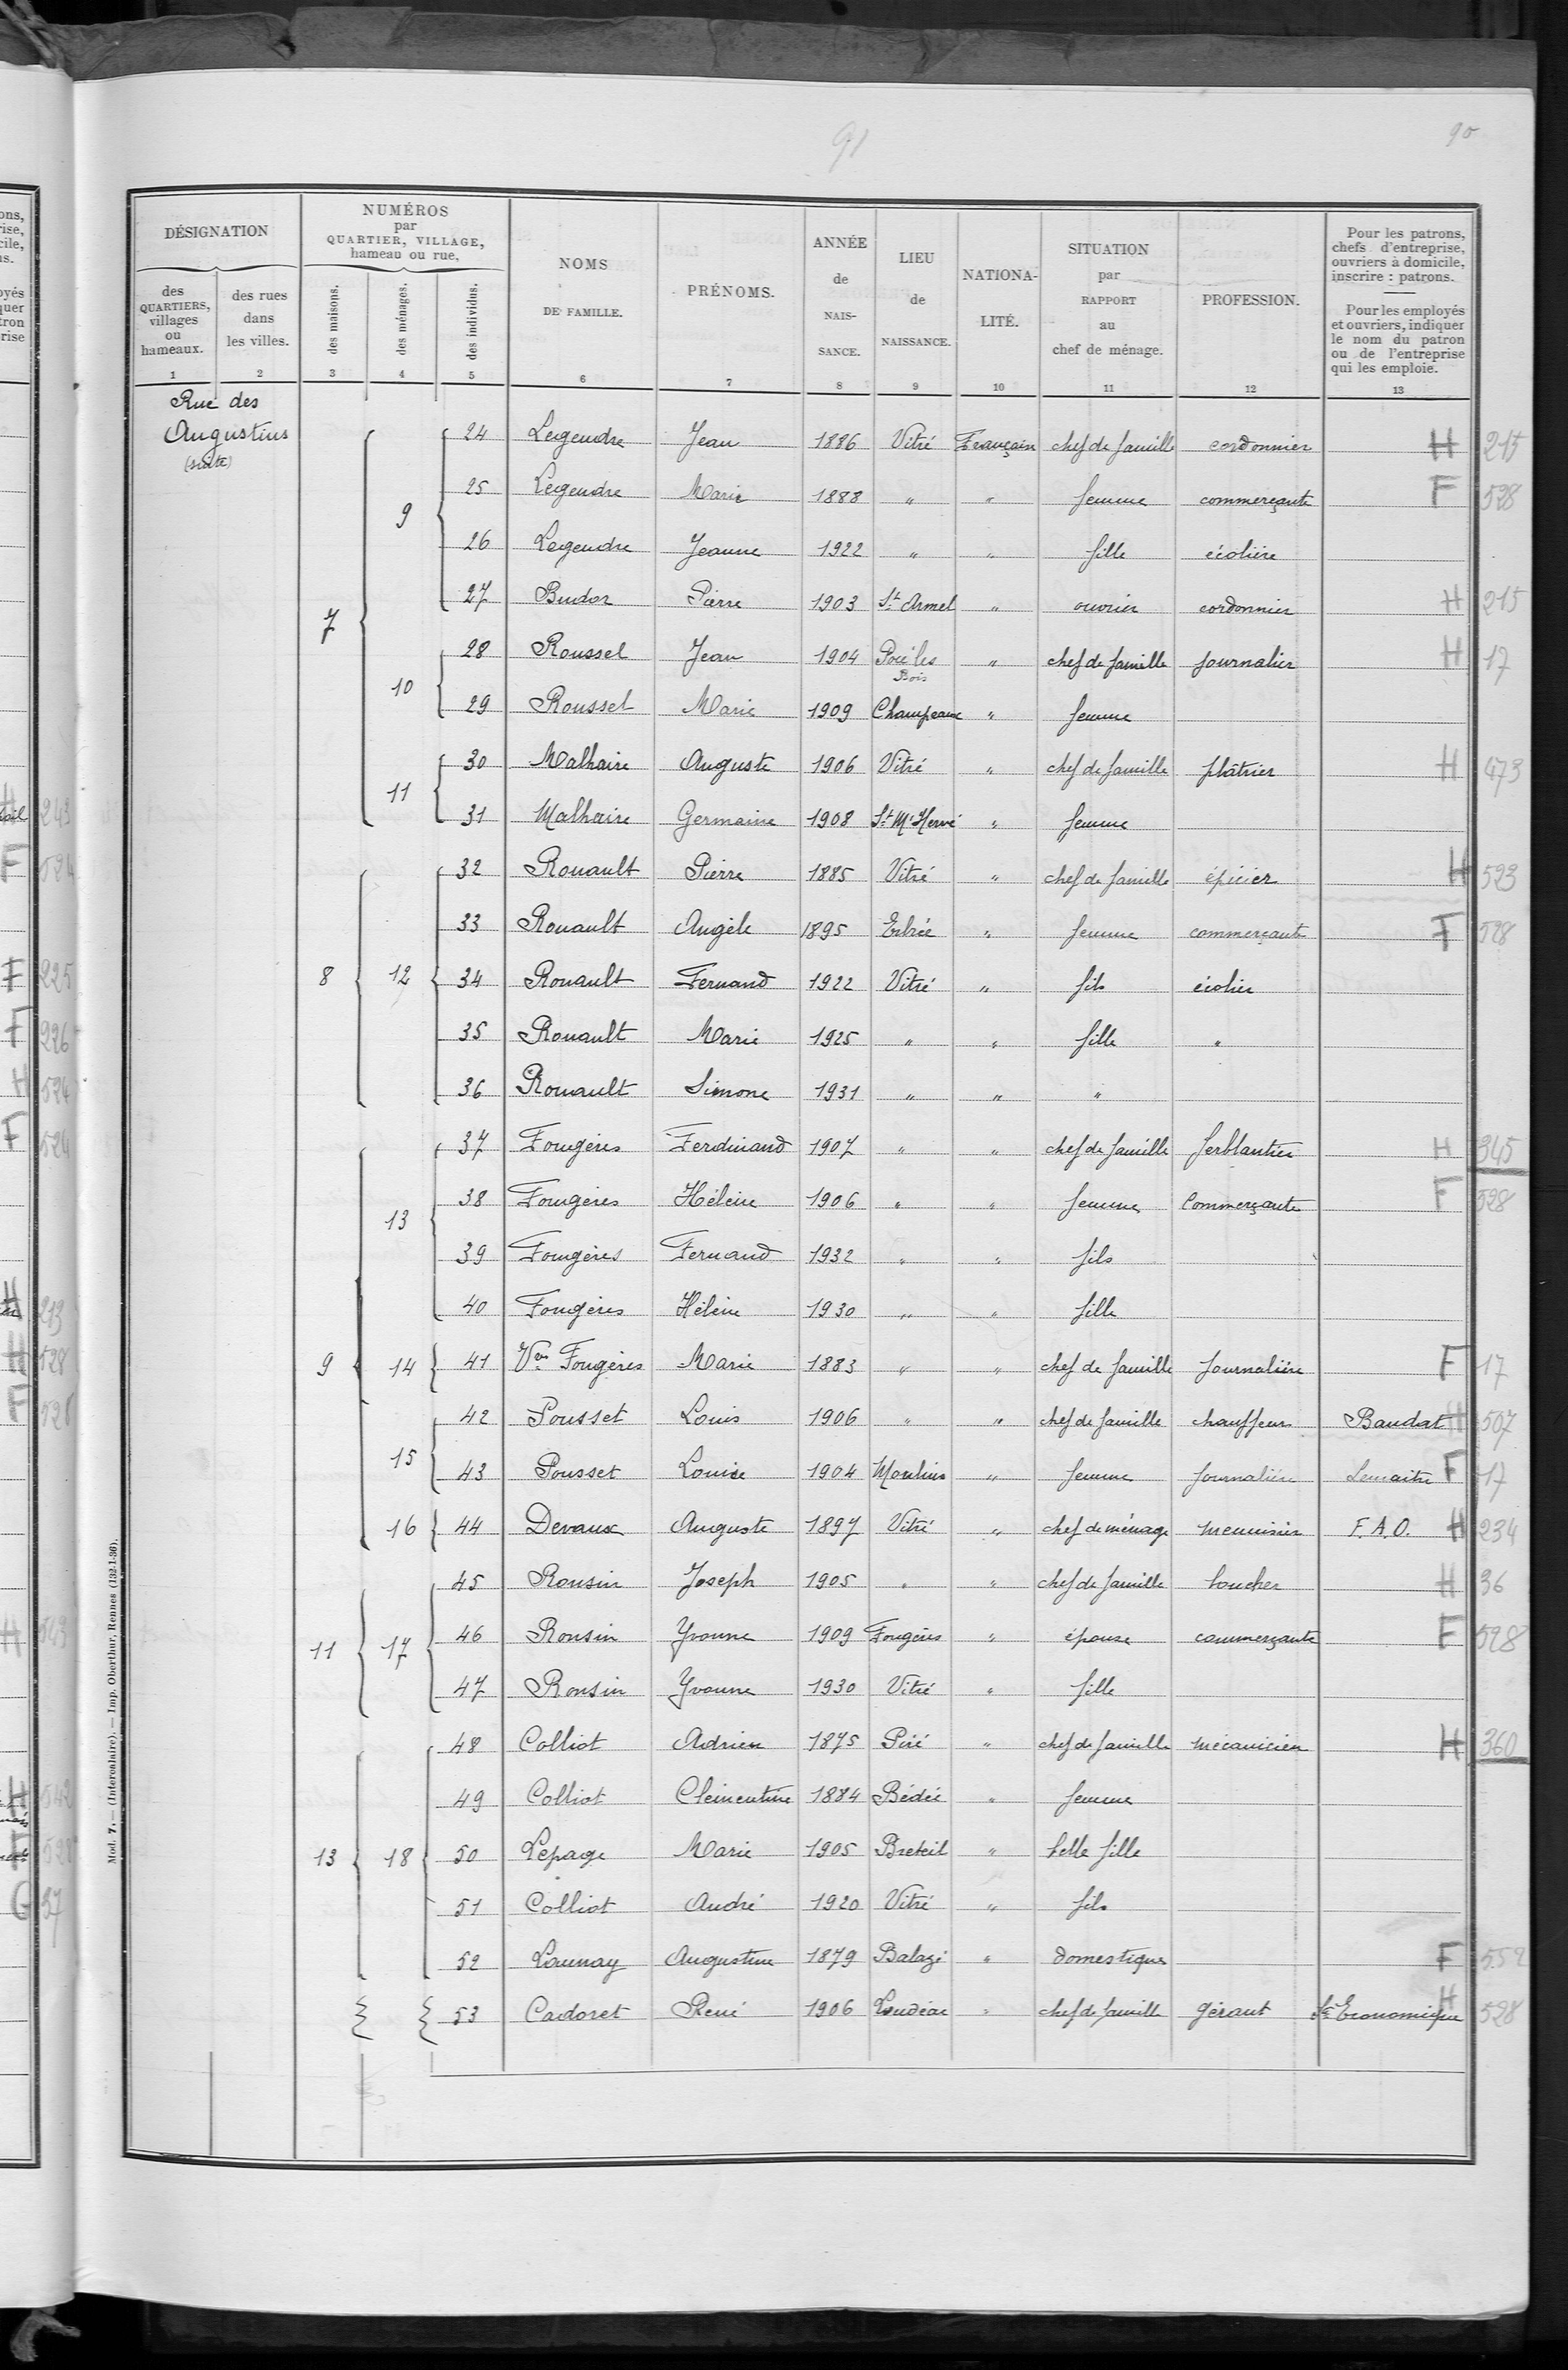 91
90
DÉSIGNATION
NUMÉROS
par
QUARTIER, VILLAGE,
hameau ou rue.
des
QUARTIERS,
villages
ou
hameaux.
1
des rues
dans
les villes.
2
des maisons.
3
des ménages.
4
des individus.
5
NOMS
DE FAMILLE.
6
PRÉNOMS.
7
ANNÉE
de
NAIS-
SANCE.
8
LIEU
de
NAISSANCE.
9
NATIONA-
LITÉ.
10
SITUATION
par
RAPPORT
au
chef de ménage.
11
PROFESSION.
12
Pour les patrons,
chefs d'entreprise,
ouvriers à domicile,
inscrire : patrons.
Pour les employés
et ouvriers, indiquer
le nom du patron
ou de l'entreprise
qui les emploie.
13
Rue des
Augustins
(suite)
7 9 24 Legendre Jean 1886 Vitré Française chef de famille cordonnier H 215
25 Legendre Marie 1888 " " femme commerçante F 528
26 Legendre Jeanne 1922 " " fille écolière
27 Budor Pierre 1903 St Armel " ouvrier cordonnier H 215
10 28 Roussel Jean 1904 Pocé les Bois " chef de famille journalier H 17
29 Roussel Marie 1909 Champeaux " femme
11 30 Malhaire Auguste 1906 Vitré " chef de famille plâtrier H 473
31 Malhaire Germaine 1908 St M' Hervé " femme
8 12 32 Rouault Pierre 1885 Vitré " chef de famille épicier H 523
33 Rouault Angèle 1895 Erbrée " femme commerçante F 528
34 Rouault Fernand 1922 Vitré " fils écolier
35 Rouault Marie 1925 " " fille "
36 Rouault Simone 1931 " " "
9 13 37 Fougères Ferdinand 1907 " " chef de famille ferblantier H 345
38 Fougères Hélène 1906 " " femme Commerçante F 528
39 Fougères Fernand 1932 " " fils
40 Fougères Hélène 1930 " " fille
14 41 Vve Fougères Marie 1883 " " chef de famille journalière F 17
15 42 Pousset Louis 1906 " " chef de famille chauffeur Baudat H 507
43 Pousset Louise 1904 Moulins " femme journalière Lemaitre F 17
16 44 Devaux Auguste 1897 Vitré " chef de ménage menuisier F.A.O. H 234
11 17 45 Ronsin Joseph 1905 " " chef de famille boucher H 36
46 Ronsin Yvonne 1909 Fougères " épouse commerçante F 528
47 Ronsin Yvonne 1930 Vitré " fille
13 18 48 Colliot Adrien 1875 Piré " chef de famille mécanicien H 360
49 Colliot Clémentine 1884 Bédée " femme
50 Lepage Marie 1905 Breteil " belle fille
51 Colliot André 1920 Vitré " fils
52 Launay Augustine 1879 Balazé " domestique F 552
53 Cadoret René 1906 Loudéac " chef de famille gérant Sté Economique H 528
Mod. 7. — (Intercalaire). — Imp. Oberthur, Rennes (132-1-36).